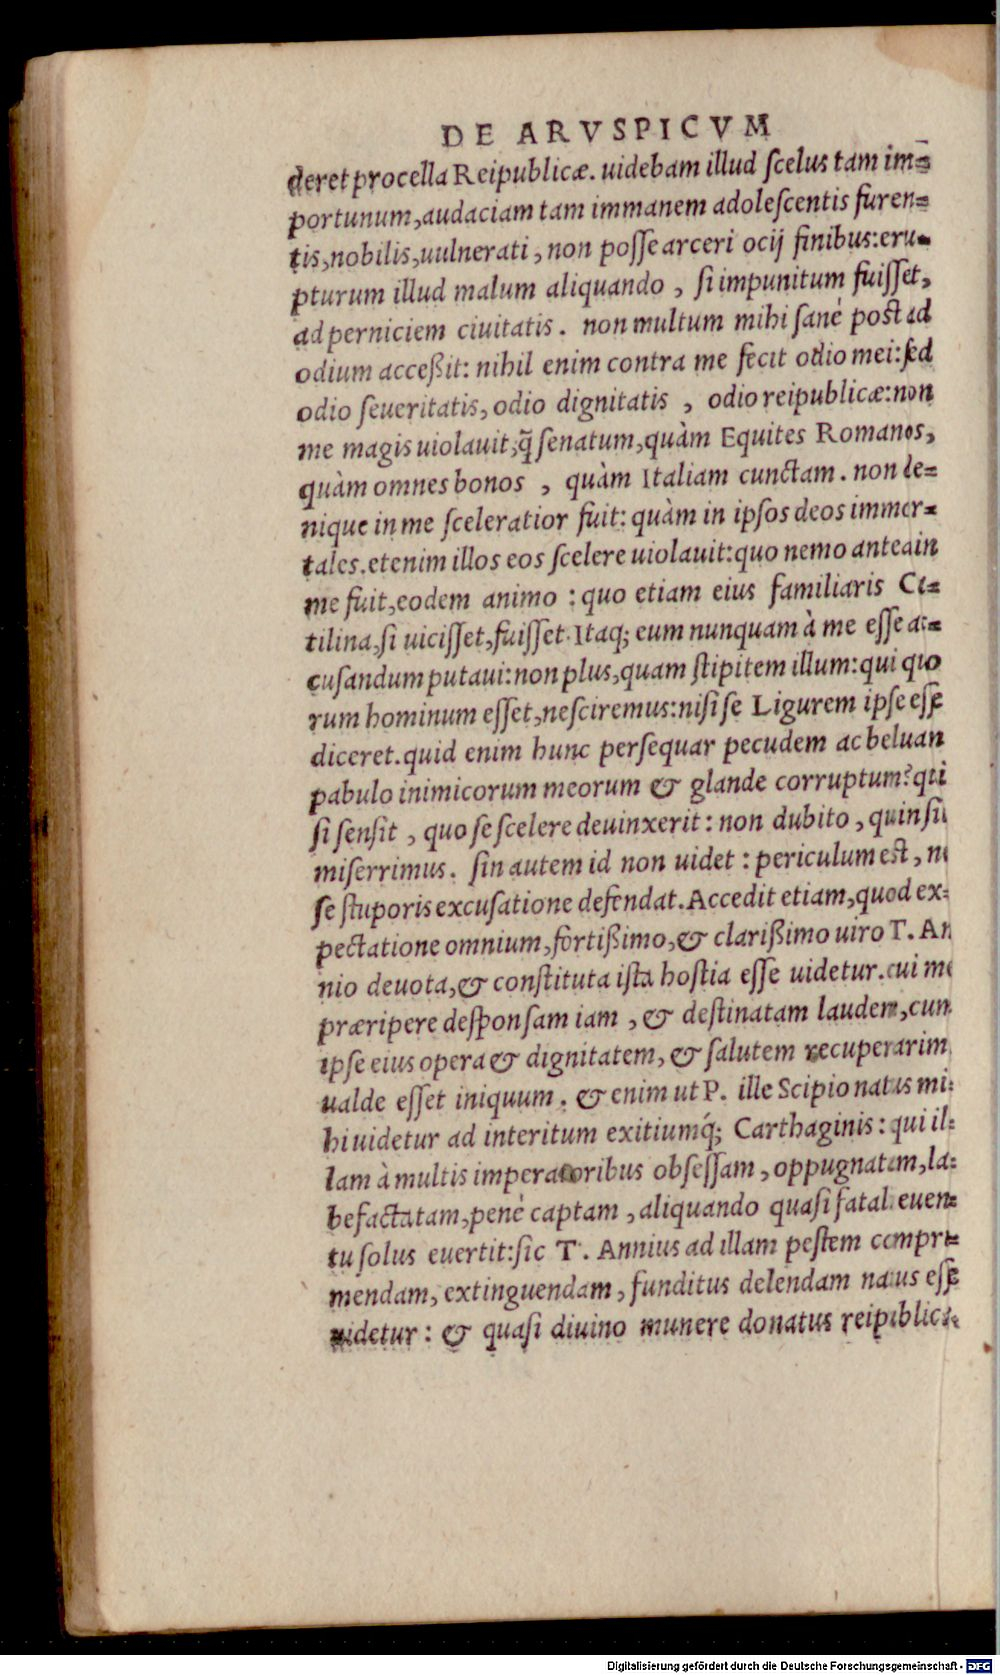 DE ARVSPICVM
deret procella Reipublicæ. uidebam illud ſcelus tam im=
portunum, audaciam tam immanem adoleſcentis furen=
tis, nobilis, uulnerati, non poſſe arceri ocij finibus: eru=
pturum illud malum aliquando, ſi impunitum fuiſſet,
ad perniciem ciuitatis. non multum mihi ſanè post ad
odium acceßit: nihil enim contra me fecit odio mei: ſed
odio ſeueritatis, odio dignitatis, odio reipublicæ: non
me magis uiolauit, q̃ ſenatum, quàm Equites Romanos,
quàm omnes bonos, quàm Italiam cunctam. non de=
nique in me ſceleratior fuit: quàm in ipſos deos immor=
tales. etenim illos eos ſcelere uiolauit: quo nemo antea in
me fuit, eodem animo: quo etiam eius familiaris Ca=
tilina, ſi uiciſſet, fuiſſet. Itaq; eum nunquam à me eſſe ac=
cuſandum putaui: non plus, quam ſtipitem illum: qui quo
rum hominum eſſet, neſciremus: niſi ſe Ligurem ipſe eſſe
diceret. quid enim hunc perſequar pecudem ac beluam
pabulo inimicorum meorum & glande corruptum? qui
ſi ſenſit, quo ſe ſcelere deuinxerit: non dubito, quin ſit
miſerrimus. ſin autem id non uidet: periculum est, ne
ſe ſtuporis excuſatione defendat. Accedit etiam, quod ex=
pectatione omnium, fortißimo, & clarißimo uiro T. An
nio deuota, & conſtituta iſta hoſtia eſſe uidetur. cui me
præripere deſponſam iam, & deſtinatam laudem, cum
ipſe eius opera & dignitatem, & ſalutem recuperarim
ualde eſſet iniquum. & enim ut P. ille Scipio natus mi=
hi uidetur ad interitum exitiumq́; Carthaginis: qui il=
lam à multis imperatoribus obſeſſam, oppugnatam, la=
befactatam, penè captam, aliquando quaſi fatali euen=
tu ſolus euertit: ſic T. Annius ad illam peſtem compri=
mendam, extinguendam, funditus delendam natus eſſe
uidetur: & quaſi diuino munere donatus reipublicæ.
Digitalisierung gefördert durch die Deutsche Forschungsgemeinschaft - DFG